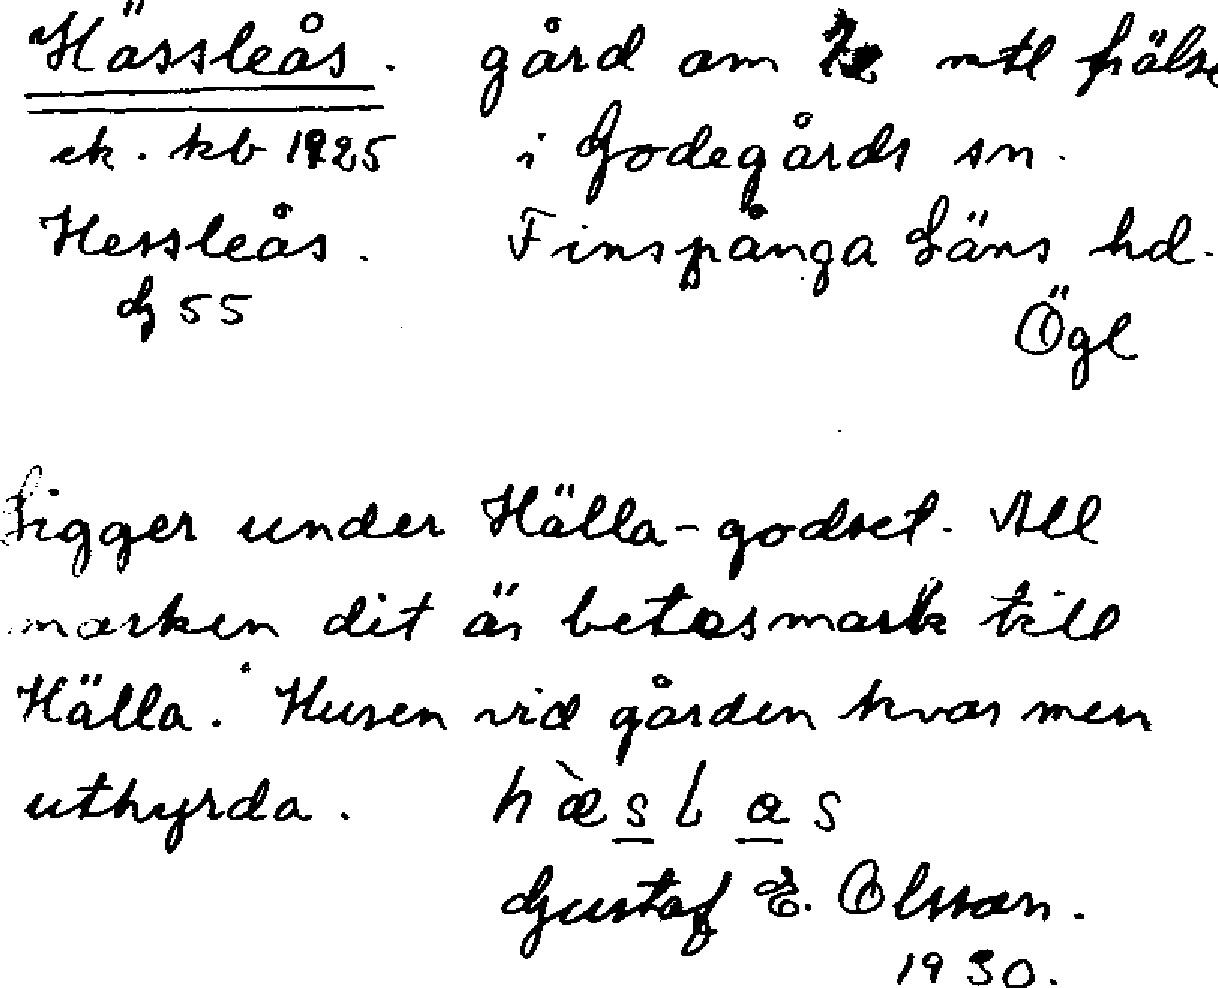 Hässleås. gård om mtl frälse
ek. kb 1925 i Godegårds sn.
Hessleås. Finspånga Läns hd.
dg 55
Ögl
Ligger under Hälla-godset. All
marken dit är betesmark till
Hälla. Husen vid gården kvar men
uthyrda. hæ̀slas
Gustaf E. Olsson.
1930.